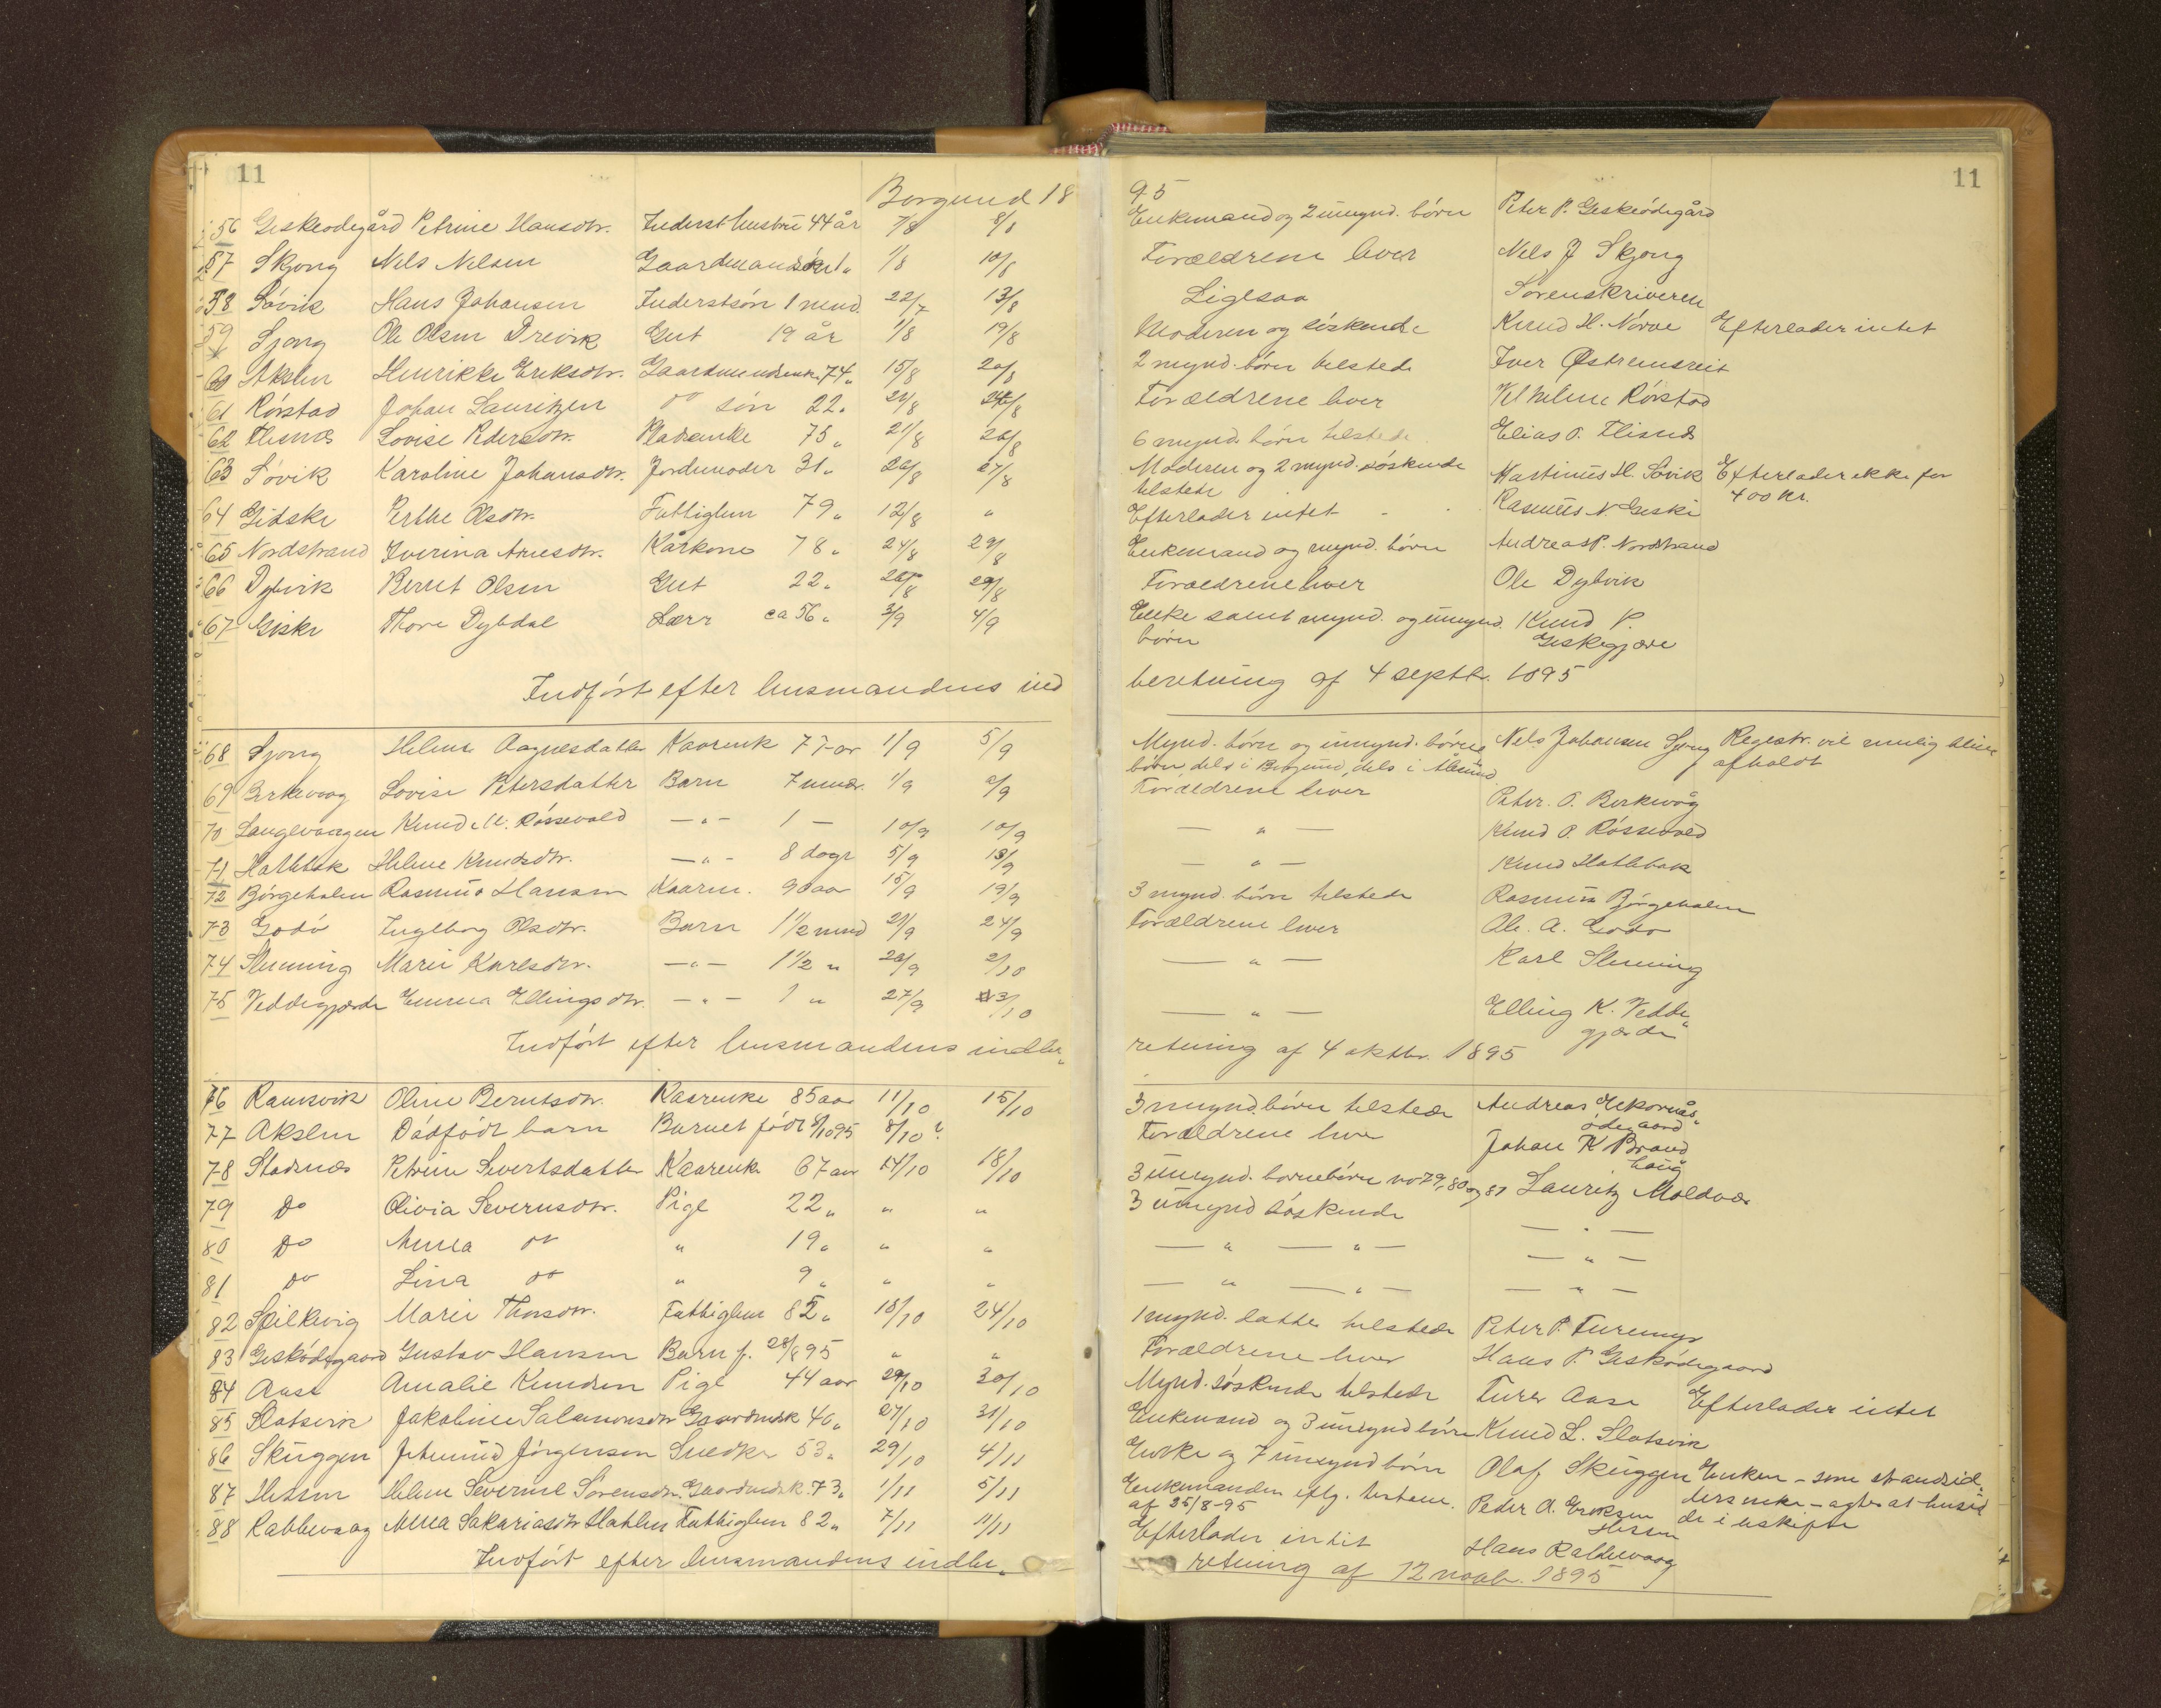 11
11
Borgund 18 95
56 Geskeødegård Petrine Hansdtr. Inderst hustru 44 år 7/8 8/8 Enkemand og 2 umynd. børn Peter P. Geskeödegård
57 Skjong Nels Nelsen Gaardmandsön 1/8 10/8 Forældrene lever Nels J Skjong
58 Sövik Hans Johansen Inderstsön 1 mnd. 22/7 13/8 Ligesaa Sorenskriveren
59 Sjong Ole Olsen Drevik Gut 19 år 7/8 19/8 Moderen og söskende Knud H. Nörve Efterlader intet
60 Akslen Henrikke Eriksdtr. Gaardmandsenk. 74 „ 15/8 20/8 2 mynd. börn tilstede Iver Østremsveit
61 Rörstad Johan Lauritzen do sön 22 „ 24/8 Forældrene lever Vilhelme Rörstad
62 Flisnæs Lovise Pedersdtr. Pladsenke 75 „ 21/8 26/8 6 mynd. börn tilstede Elias O. Flisnæs
63 Sövik Karoline Johansdtr. Jordemoder 31 „ 26/8 27/8 Moderen og 2 mynd. söskende Martinus H. Sövik Efterlader ikke for
tilstede 400 Kr.
64 Gidske Perthe Olsdtr. Fattiglem 79 „ 12/8 „ Efterlader intet Rasmus N. Geske
65 Nordstrand Iverina Arnesdtr. Kårkone 78 „ 24/8 29/8 Enkemand og mynd. börn Andreas P. Nordstrand
66 Dybvik Bernt Olsen Gut 22 „ 29/8 Forældrene lever Ole Dybvik
67 Giske Thore Dybdal Lærer ca 56 „ 3/9 4/9 Enke samt mynd. og umynd. Knud P.
börn Geskegjære
Indfört efter lensmandens ind beretning af 4 septb. 1895
68 Sjong Helene Aagnesdatter Kaarenk 77 ar 1/9 5/9 Mynd. börn og umynd. börne Nels Johansen Sjong Registr. vil mulig blive
börn, dels i Borgund, dels i Ålesund afholdt
69 Berkevaag Lovise Petersdatter Barn 7 mndr. 1/9 Forældrene lever Peter. O. Berkevåg
70 Langevaagen Knud M. Rössevold — „ — 1 — 10/9 10/9 — „ — Knud O. Rössevold
71 Hatlebak Helene Knudsdtr. — „ — 8 dage 5/9 13/9 — „ — Knud Hatlebak
72 Börgeholm Rasmus Hansen Kaarm. 90 aar 15/9 19/9 3 mynd. börn tilstede Rasmus Börgeholm
73 Godö Ingeborg Olsdtr. Barn 1½ mnd 21/9 24/9 Forældrene lever Ole. A. Godö
74 Slinning Marie Karlsdtr. — „ — 1½ „ 20/9 2/10 — „ — Karl Slinning
75 Veddegjærde Emma Ellingsdtr. — „ — 1 „ 27/9 3/10 — „ — Elling K. Vedde
gjærde
Indfört efter lensmandens indbe„ retning af 4 oktbr. 1895
76 Ramsvik Oline Berntsdtr. Kaarenke 85 aar 11/10 15/10 3 mynd. börn tilstede Andreas Ekornås
ödegaard
77 Akslen Dödfödt barn Barnet födt 8/10 95 8/10 ? Forældrene lever Johan K Brand
haug
78 Stadsnæs Petrine Sivertsdatter Kaarenk. 67 aar 14/10 18/10 3 umynd. barnebörn no 79, 80 og 81 Lauritz Moldvær
79 Do Olivia Severinsdtr. Pige 22 „ „ „ 3 umynd söskende — „ —
80 Do Anna do „ 19 „ „ „ — „ — „ — — „ —
81 do Lina do „ 9 „ „ „ — „ — „ — — „ —
82 Spilkevig Marie Thorsdtr. Fattiglem 82 „ 18/10 24/10 1 mynd. datter tilstede Peter P. Furemyr
83 Gesködegaard Gustav Hansen Barn f. 28/8 95 „ „ Forældrene lever Hans P. Gesködegaard
84 Aase Amalie Knudsen Pige 44 aar 29/10 30/10 Mynd. söskende tilstede Ture Aase Efterlader intet
85 Slotsvik Jakobine Salamonsdtr Gaardmdsk 40 „ 27/10 31/10 Enkemand og 3 umynd börn Knud L. Slotsvik
86 Skuggen Jetmund Jörgensen Snedker 53 „ 29/10 4/11 Enke og 7 umynd börn Olaf Skuggen Enken – som strandsid„
87 Hessen Helene Severine Sörensdtr. Gaardmdsk. 73 „ 1/11 5/11 Enkemanden eflg. testam. Peder A. Eriksen derenke – agter at hensid
af 25/8-95 Hessen de i uskifte
88 Rabbevaag Anna Sakariasdtr Hatlen Fattiglem 82 „ 7/11 11/11 Efterlader intet Hans Rabbevaag
Indfört efter lensmandens indbe„ retning af 12 novbr. 1895